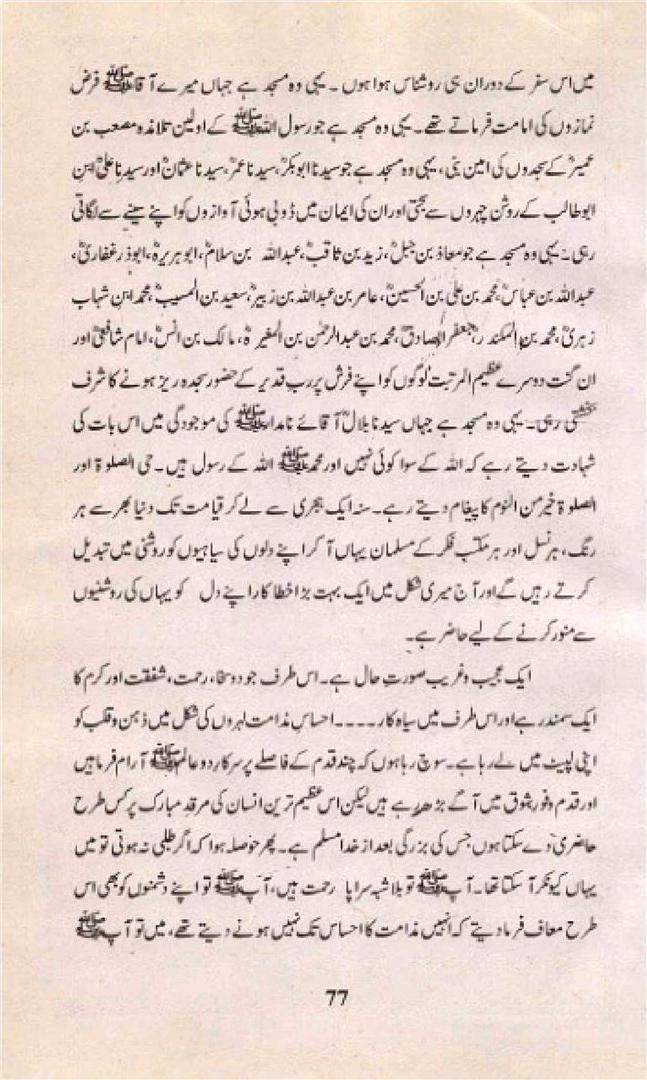 میں اس سفر کے دوران ہی روشناس ہوا ہوں ۔ یہی وہ مسجد ہے جہاں میرے آقا ﷺ فرض
نمازوں کی امامت فرماتے تھے۔ یہی وہ مسجد ہے جو رسول اللہ ﷺ کے اولین تلامذہ مصعب بن
عمیرؓ کے سجدوں کی امین بنی، یہی وہ مسجد ہے جو سیدنا ابوبکرؓ، سیدنا عمرؓ، سیدنا عثمانؓ اور سیدنا علیؓ ابنِ
ابو طالب کے روشن چہروں سے سجتی اور ان کی ایمان میں ڈوبی ہوئی آوازوں کو اپنے سینے سے لگاتی
رہی۔ یہی وہ مسجد ہے جو معاذ بن جبلؓ، زید بن ثاقبؓ، عبداللہ بن سلامؓ، ابو ہریرہؓ، ابوذر غفاریؓ،
عبداللہ بن عباسؓ، محمد بن علیؓ بن الحسینؓ، عامر بن عبداللہ بن زبیرؓ، سعید بن المسیبؓ، محمد ابنِ شہاب
زہریؒ، محمد بن المکندرؒ، جعفر الصادقؓ، محمد بن عبدالرحمٰن بن المغیرہؓ، مالک بن انسؓ، امام شافعیؒ اور
ان گنت دوسرے عظیم المرتبت لوگوں کو اپنے فرش پر ربِ قدیر کے حضور سجدہ ریز ہونے کا شرف
بخشتی رہی۔ یہی وہ مسجد ہے جہاں سیدنا بلالؓ آقائے نامدار ﷺ کی موجودگی میں اس بات کی
شہادت دیتے رہے کہ اللہ کے سوا کوئی نہیں اور محمد ﷺ اللہ کے رسول ہیں۔ حی الصلوٰۃ اور
الصلوٰۃ خیر من النوم کا پیغام دیتے رہے۔ سنہ ایک ہجری سے لے کر قیامت تک دنیا بھر سے ہر
رنگ، ہر نسل اور ہر مکتبِ فکر کے مسلمان یہاں آ کر اپنے دلوں کی سیاہیوں کو روشنی میں تبدیل
کرتے رہیں گے اور آج میری شکل میں ایک بہت بڑا خطا کار اپنے دل کو یہاں کی روشنیوں
سے منور کرنے کے لیے حاضر ہے۔
ایک عجیب و غریب صورتِ حال ہے۔ اس طرف جود و سخا، رحمت، شفقت اور کرم کا
ایک سمندر ہے اور اس طرف میں سیاہ کار۔۔۔۔ احساسِ ندامت لہروں کی شکل میں ذہن و قلب کو
اپنی لپیٹ میں لے رہا ہے۔ سوچ رہا ہوں کہ چند قدم کے فاصلے پر سرکارِ دو عالم ﷺ آرام فرما ہیں
اور قدم وفورِ شوق میں آگے بڑھ رہے ہیں لیکن اس عظیم ترین انسان کی مرقدِ مبارک پر کس طرح
حاضری دے سکتا ہوں جس کی بزرگی بعد از خدا مسلم ہے۔ پھر حوصلہ ہوا کہ اگر طلبی نہ ہوتی تو میں
یہاں کیونکر آ سکتا تھا۔ آپ ﷺ تو بلا شبہ سراپا رحمت ہیں، آپ ﷺ تو اپنے دشمنوں کو بھی اس
طرح معاف فرما دیتے کہ انہیں ندامت کا احساس تک نہیں ہونے دیتے تھے، میں تو آپ ﷺ
77